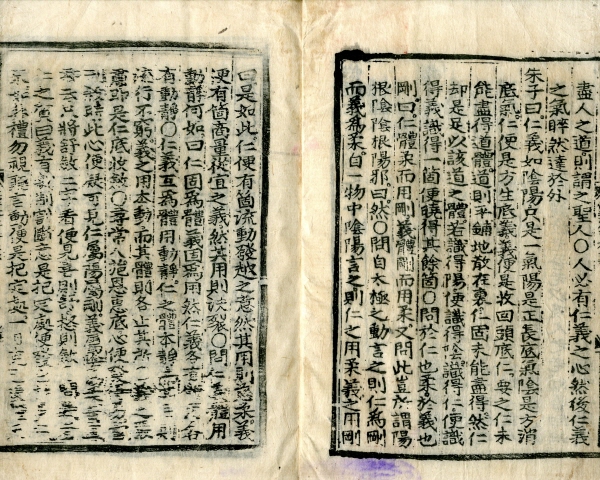 盡人之道則謂之聖人〇人必有仁義之心然後仁義
之氣睟然達於外
朱子曰仁義如陰陽只是一氣陽是正長底氣陰是方消
底氣仁便是方生底義義便是收回頭底仁要之仁未
能盡得道體道則平鋪地散在裏仁固未能盡得然仁
却是足以該道之體若識得陽便識得陰識得仁便識
得義識得一箇便曉得其餘箇〇問於仁也柔於義也
剛曰仁體柔而用剛義體剛而用柔又問此豈所謂陽
根陰陰根陽邪曰然〇問自太極之動言之則仁爲剛
而義爲柔自一物中陰陽言之則仁之用柔義之用剛
曰是如此仁便有箇流動發越之意然其用則慈柔義
便有箇商量從宜之義然其用則決裂〇問仁義體用
動靜何如曰仁固爲體義固爲用然仁義各有體用各
有動靜〇仁義互爲體用動靜仁之體本靜而其用則
流行不窮義之用本動而其體則各止其所
底收斂〇尋常人施恩惠底心便發得易
時此心便 可見仁屬陽屬剛義屬陰屬
只將舒斂二字看便見喜則舒怒則斂 問
仁之 曰義有裁制割斷意是把定處便發
非禮勿視聽言動便是把定處一日